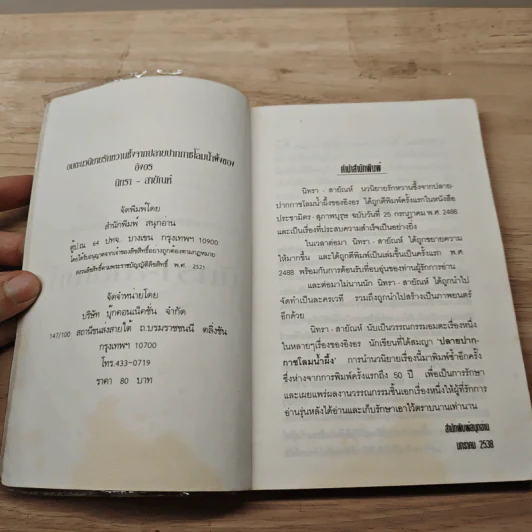 อมตะนวนิยายรักหวานซึ้งจากปลายปากกาชโลมน้ำผึ้งของ
อิงอร
นิทรา - สายัณห์
จัดพิมพ์โดย
สำนักพิมพ์ สนุกอ่าน
ตู้ปณ. 64 ปทจ. บางเขน กรุงเทพฯ 10900
ผู้ใดได้รับอนุญาตจากเจ้าของลิขสิทธิ์อย่างถูกต้องตามกฎหมาย
สงวนลิขสิทธิ์ตามพระราชบัญญัติลิขสิทธิ์ พ.ศ. 2521
จัดจำหน่ายโดย
บริษัท บุ๊คคอนเน็คชั่น จำกัด
147/100 สถานีขนส่งสายใต้ ถ.บรมราชชนนี ตลิ่งชัน
กรุงเทพฯ 10700
โทร.433-0719
ราคา 80 บาท
คำนำสำนักพิมพ์
นิทรา - สายัณห์ นวนิยายรักหวานซึ้งจากปลาย-
ปากกาชโลมน้ำผึ้งของอิงอร ได้ถูกตีพิมพ์ครั้งแรกในหนังสือ
ประชามิตร-สุภาพบุรุษ ฉบับวันที่ 25 กรกฎาคม พ.ศ. 2488
และเป็นเรื่องที่ประสบความสำเร็จเป็นอย่างยิ่ง
ในเวลาต่อมา นิทรา - สายัณห์ ได้ถูกขยายความ
ให้มากขึ้น และได้ถูกตีพิมพ์เป็นเล่มขึ้นเป็นครั้งแรก พ.ศ.
2488 พร้อมกับการต้อนรับที่อบอุ่นของท่านผู้รักการอ่าน
และต่อมาไม่นานนัก นิทรา - สายัณห์ ได้ถูกนำไป
จัดทำเป็นละครเวที รวมถึงถูกนำไปสร้างเป็นภาพยนตร์
อีกด้วย
นิทรา - สายัณห์ นับเป็นวรรณกรรมอมตะเรื่องหนึ่ง
ในหลายๆเรื่องของอิงอร นักเขียนที่ได้สมญา "ปลายปาก-
กาชโลมน้ำผึ้ง" การนำนวนิยายเรื่องนี้มาพิมพ์ซ้ำอีกครั้ง
ซึ่งห่างจากการพิมพ์ครั้งแรกถึง 50 ปี เพื่อเป็นการรักษา
และเผยแพร่ผลงานวรรณกรรมชิ้นเอกเรื่องหนึ่งให้ผู้ที่รักการ
อ่านรุ่นหลังได้อ่านและเก็บรักษาเอาไว้ตราบนานเท่านาน
สำนักพิมพ์สนุกอ่าน
มกราคม 2538